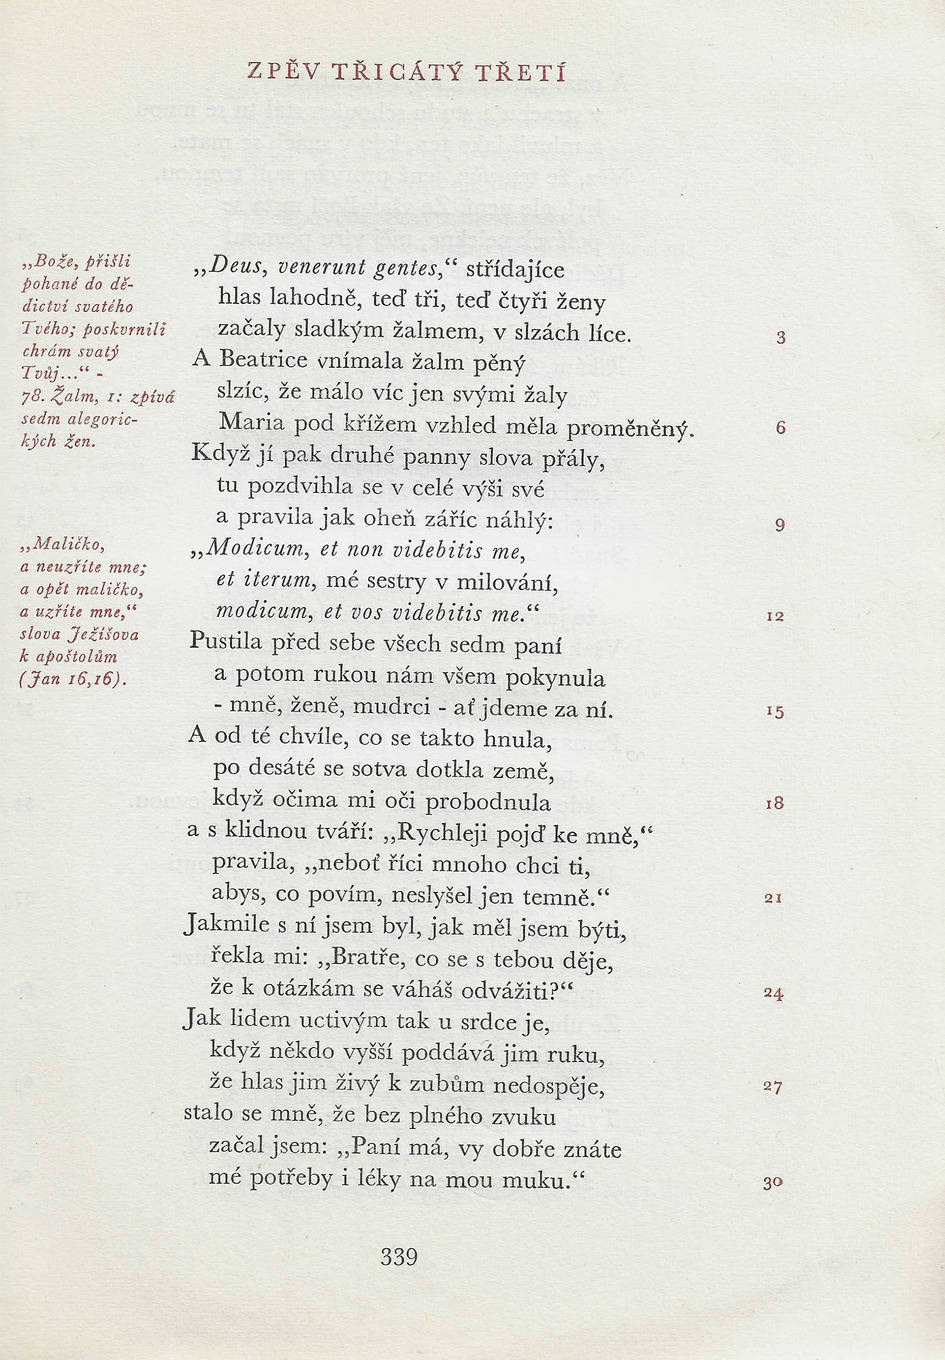 ZPĚV TŘICÁTÝ TŘETÍ
„Bože, přišli
pohané do dě-
dictví svatého
Tvého; poskvrnili
chrám svatý
Tvůj...“ -
78. Žalm, 1: zpívá
sedm alegoric-
kých žen.
„Deus, venerunt gentes,“ střídajíce
hlas lahodně, teď tři, teď čtyři ženy
začaly sladkým žalmem, v slzách líce. 3
A Beatrice vnímala žalm pěný
slzíc, že málo víc jen svými žaly
Maria pod křížem vzhled měla proměněný. 6
Když jí pak druhé panny slova přály,
tu pozdvihla se v celé výši své
a pravila jak oheň záříc náhlý: 9
„Maličko,
a neuzříte mne;
a opět maličko,
a uzříte mne,“
slova Ježíšova
k apoštolům
(Jan 16,16).
„Modicum, et non videbitis me,
et iterum, mé sestry v milování,
modicum, et vos videbitis me.“ 12
Pustila před sebe všech sedm paní
a potom rukou nám všem pokynula
- mně, ženě, mudrci - ať jdeme za ní. 15
A od té chvíle, co se takto hnula,
po desáté se sotva dotkla země,
když očima mi oči probodnula 18
a s klidnou tváří: „Rychleji pojď ke mně,“
pravila, „neboť říci mnoho chci ti,
abys, co povím, neslyšel jen temně.“ 21
Jakmile s ní jsem byl, jak měl jsem býti,
řekla mi: „Bratře, co se s tebou děje,
že k otázkám se váháš odvážiti?“ 24
Jak lidem uctivým tak u srdce je,
když někdo vyšší poddává jim ruku,
že hlas jim živý k zubům nedospěje, 27
stalo se mně, že bez plného zvuku
začal jsem: „Paní má, vy dobře znáte
mé potřeby i léky na mou muku.“ 30
339